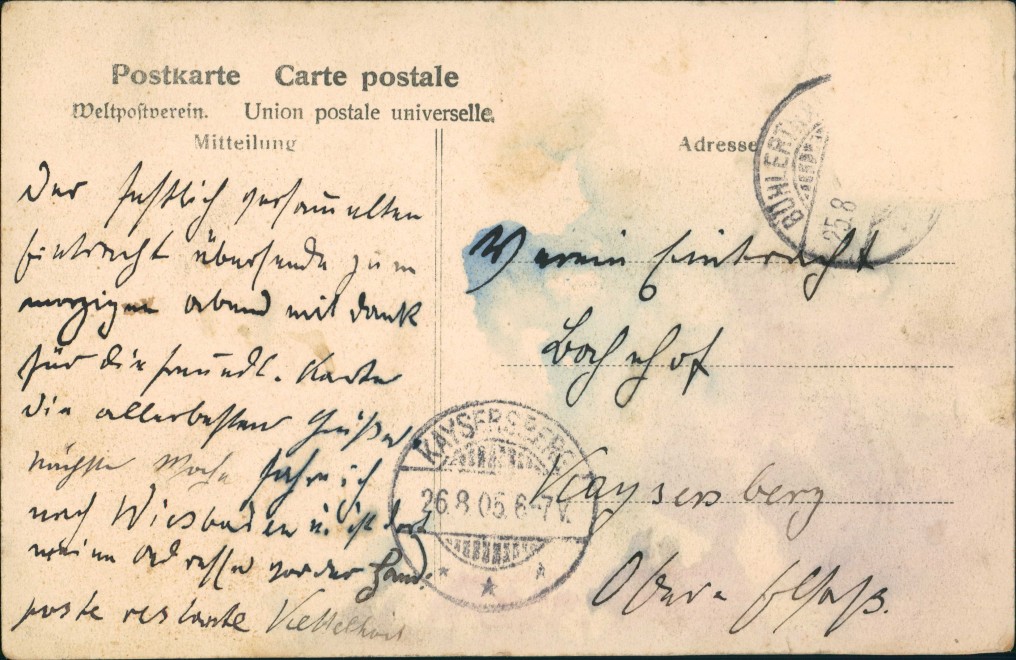 Postkarte Carte postale
Weltpostverein. Union postale universelle.
Mitteilung
Adresse
Der festlich versammelten
Eintracht übersende zum
morgigen Abend mit Dank
für die freundl. Karte
die allerbesten Grüße.
nächste Woche fahre ich
nach Wiesbaden u. ist dort
meine Adresse vor der Hand:
poste restante
Verein Eintracht
Bahnhof
Kaysersberg
Ober-Elsaß.
BÜHLERT
25.8
KAYSERSBERG
26.8.05.6-7V.